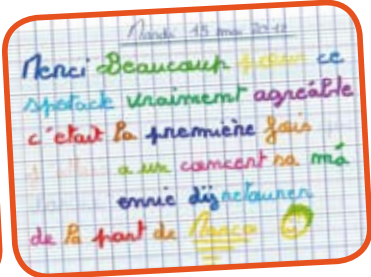 Mardi 15 mai 2012
Merci Beaucoup pour ce
spetacle vraiment agréable
c'était la première fois
a un concert sa má
envie dij retourner
de la part de